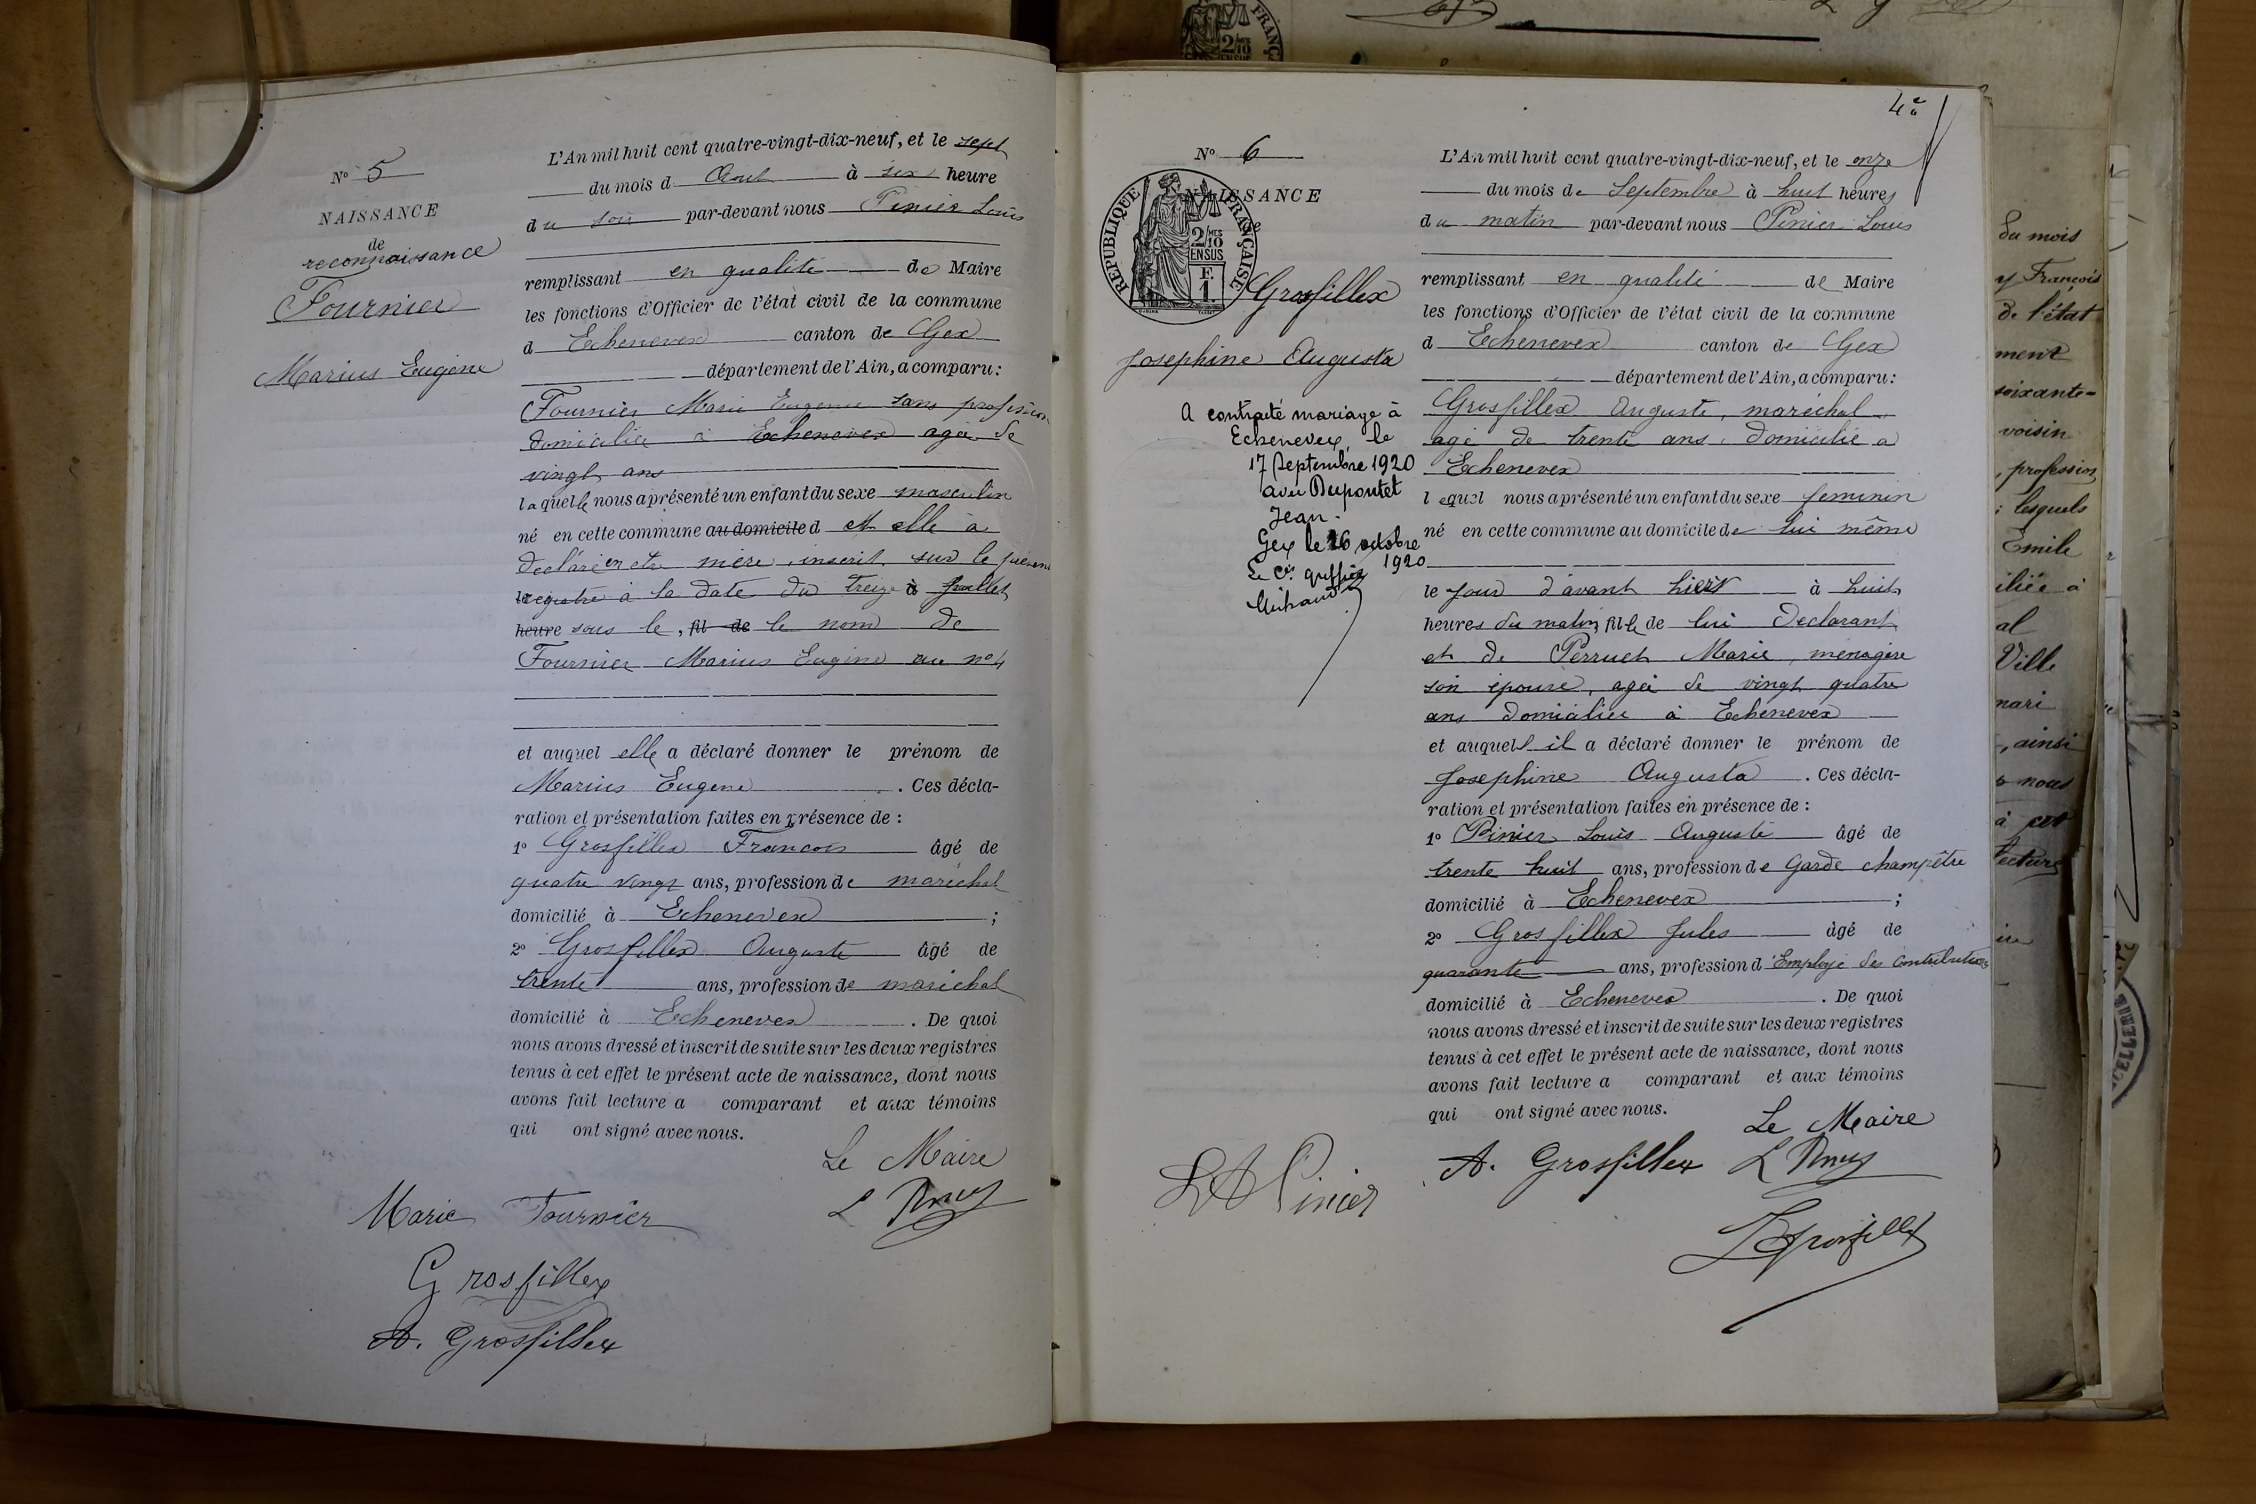 N° 5
NAISSANCE
de
reconnaissance
Fournier
Marius Eugène
L'An mil huit cent quatre-vingt-dix-neuf, et le sept
du mois d Aout à six heure
du soir par-devant nous Pinier Louis
remplissant en qualité de Maire
les fonctions d'Officier de l'état civil de la commune
d Echenevex canton de Gex
département de l'Ain, a comparu:
Fournier Marie Eugenie sans profession
domiciliée à Echenevex agée de
vingt ans
laquelle nous a présenté un enfant du sexe masculin
né en cette commune au domicile d et elle à
declaré en etre mère, inscrit sur le présent
registre à la date du treize à juillet
heure sous le, fil de le nom de
Fournier Marius Eugène au n° 4
et auquel elle a déclaré donner le prénom de
Marius Eugene . Ces décla-
ration et présentation faites en présence de :
1° Grosfillex Francois âgé de
quatre vingt ans, profession de maréchal
domicilié à Echenevex ;
2° Grosfillex Auguste âgé de
trente ans, profession de maréchal
domicilié à Echenevex . De quoi
nous avons dressé et inscrit de suite sur les deux registres
tenus à cet effet le présent acte de naissance, dont nous
avons fait lecture a comparant et aux témoins
qui ont signé avec nous.
Le Maire
Marie Fournier
Grosfillex
A. Grosfillex
4e
N° 6
NAISSANCE
de
RÉPUBLIQUE FRANÇAISE
2/10 MES
EN SUS
F.
1.
Grosfillex
Josephine Augusta
A contracté mariage à
Echenevex, le
17 Septembre 1920
avec Dupontet
Jean.
Gex le 26 octobre
1920
Le Cis greffier
L'An mil huit cent quatre-vingt-dix-neuf, et le onze
du mois de Septembre à huit heures
du matin par-devant nous Pinier Louis
remplissant en qualité de Maire
les fonctions d'Officier de l'état civil de la commune
d Echenevex canton de Gex
département de l'Ain, a comparu:
Grosfillex Auguste, maréchal
agé de trente ans, domicilié a
Echenevex
lequel nous a présenté un enfant du sexe feminin
né en cette commune au domicile de lui même
le jour d'avant hier à huit
heures du matin fille de lui Declarant
et de Perruet Marie, ménagère
son épouse, agée de vingt quatre
ans domiciliée à Echenevex
et auquel il a déclaré donner le prénom de
Josephine Augusta . Ces décla-
ration et présentation faites en présence de :
1° Pinier Louis Auguste âgé de
trente huit ans, profession de Garde champêtre
domicilié à Echenevex ;
2° Grosfillex Jules âgé de
quarante ans, profession d'Employé des Contributions
domicilié à Echenevex . De quoi
nous avons dressé et inscrit de suite sur les deux registres
tenus à cet effet le présent acte de naissance, dont nous
avons fait lecture a comparant et aux témoins
qui ont signé avec nous.
Le Maire
L A Pinier A. Grosfillex
du mois
y François
de l'état
ment
soixante-
voisin
, profession
; lesquels
Emile
iliée à
al
Ville
mari
, ainsi
nous
à cet
lecture